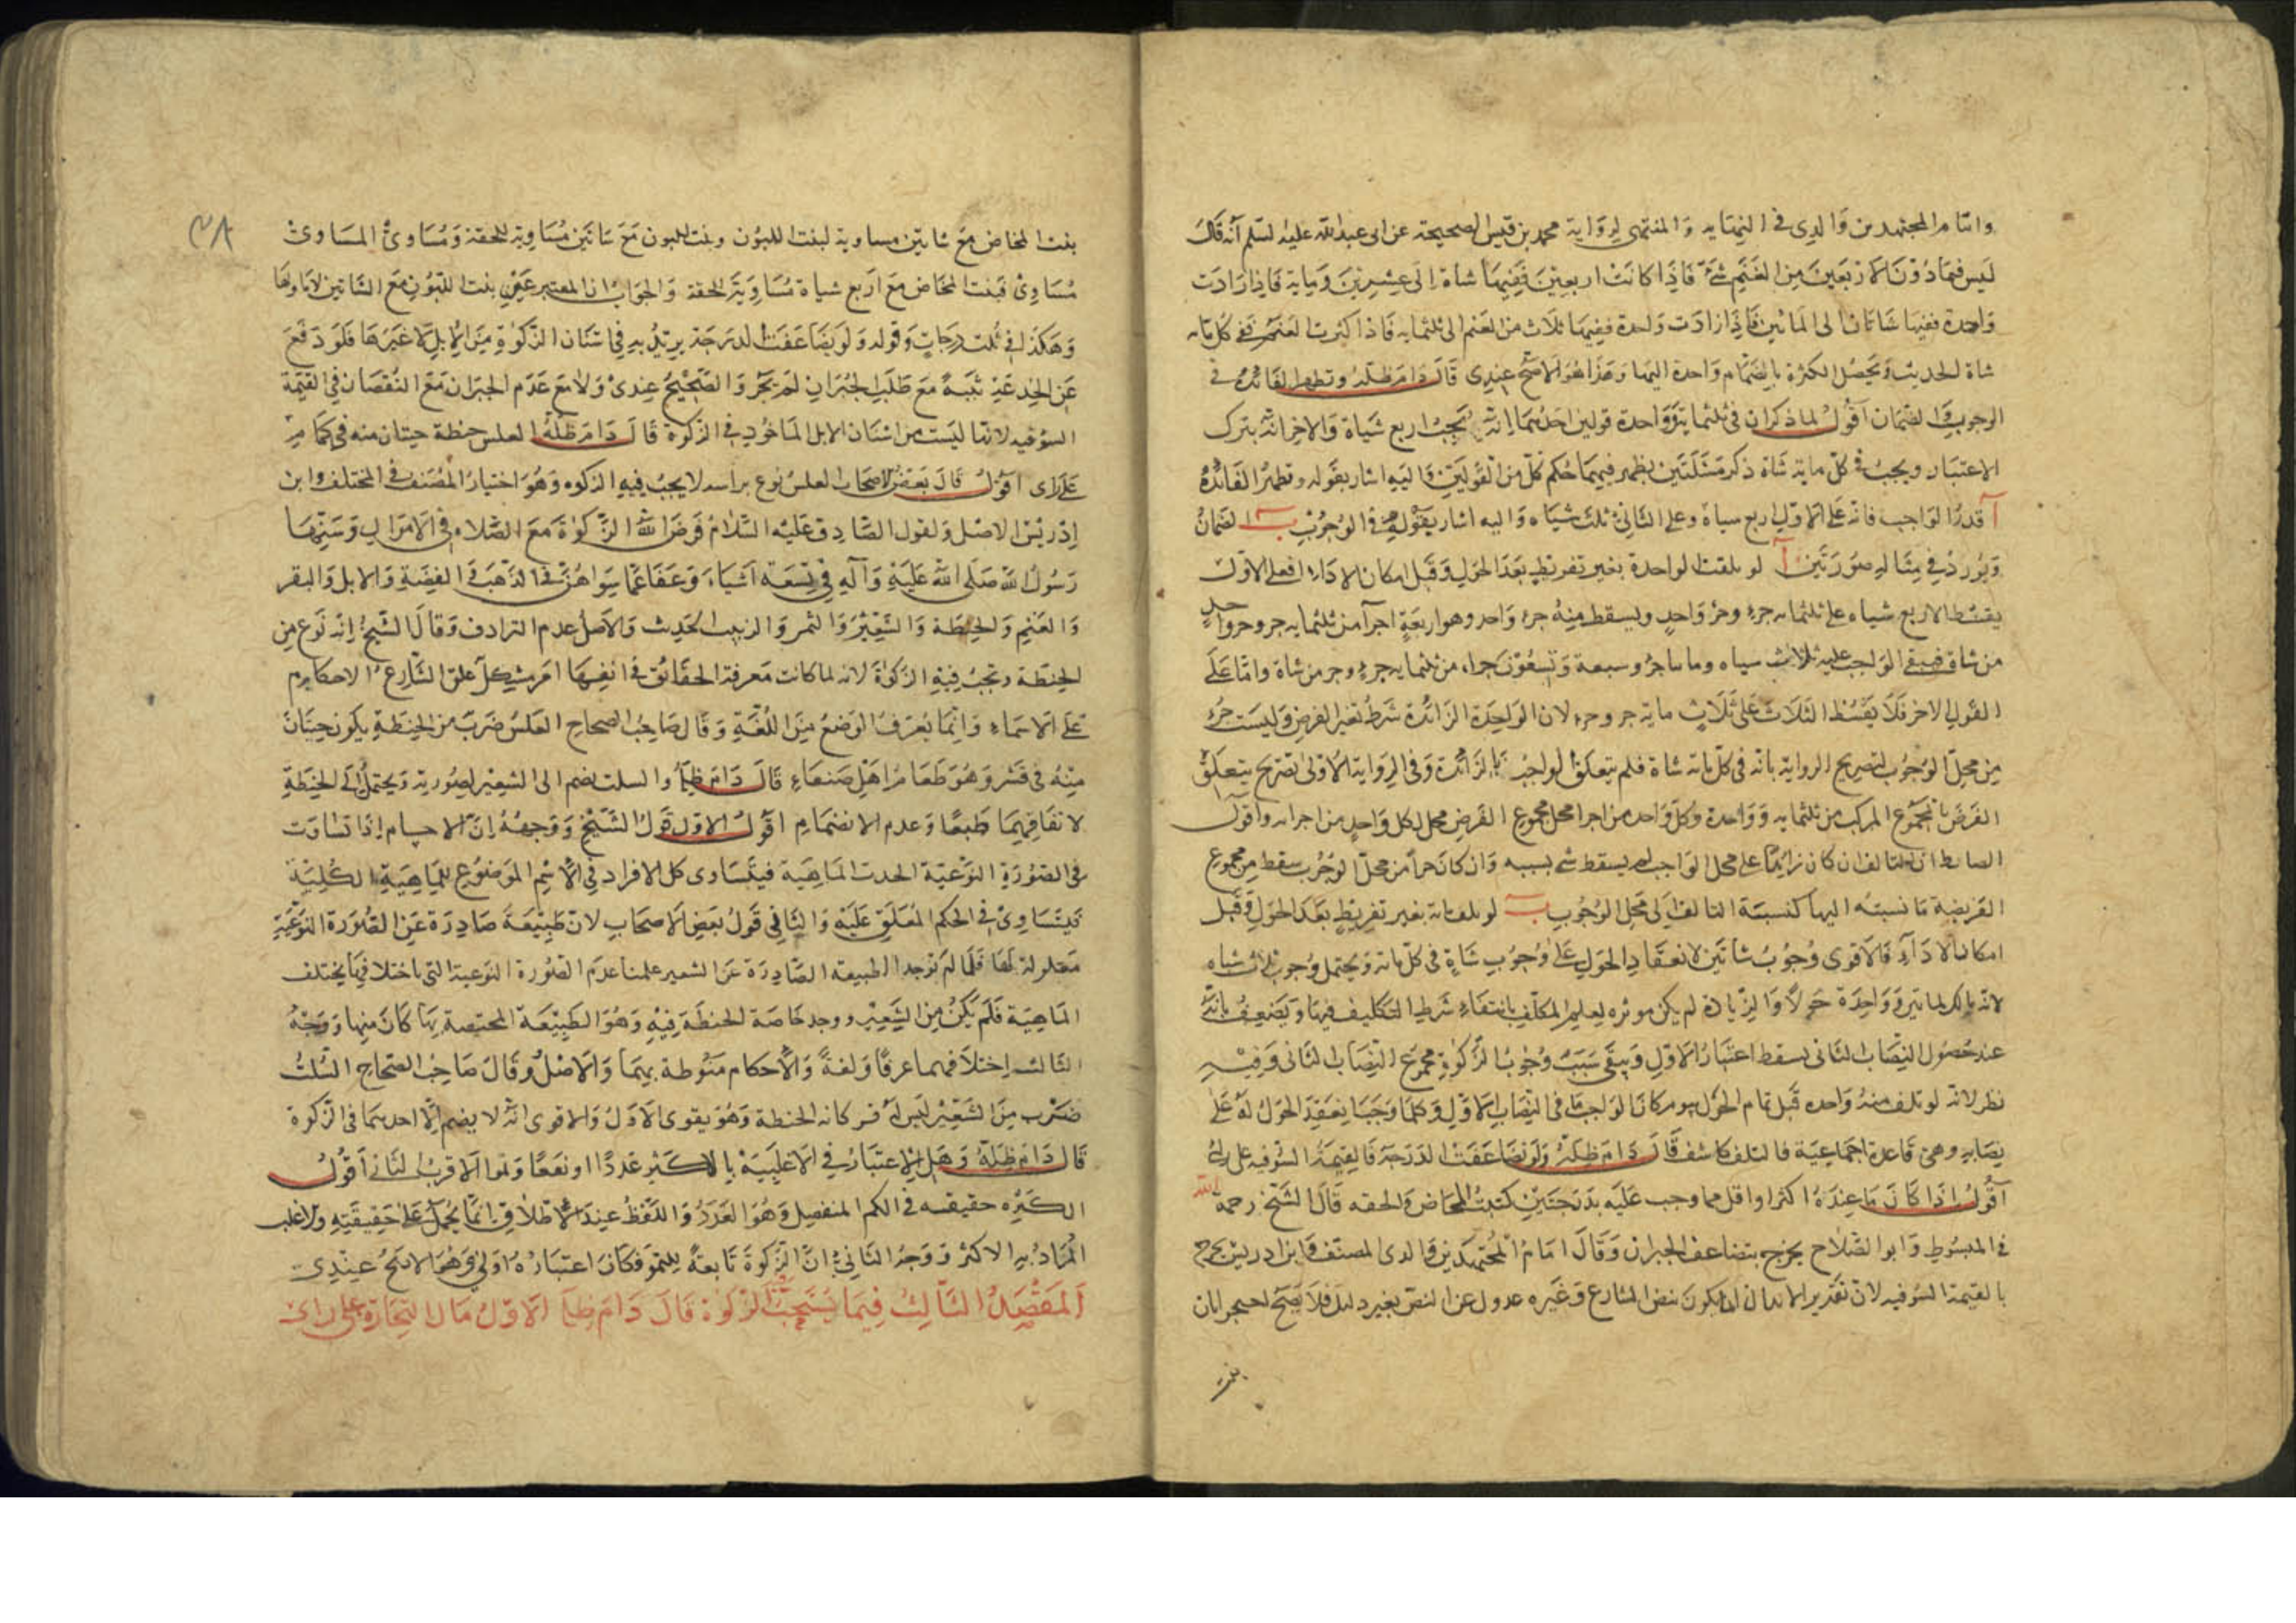 وامام المجتهدين والدي في النهاية والمنتهى لرواية محمد بن قيس الصحيحة عن ابي عبدالله عليه السلم انه قال
ليس فيما دون الاربعين من الغنم شئ فاذا كانت اربعين ففيها شاة الى عشرين وماية فاذا زادت
واحدة ففيها شاتان الى المائتين فاذا زادت واحدة ففيها ثلاث من الغنم الى ثلثمايه فاذا كثرت الغنم ففي كل مايه
شاة الحديث ويحصل الكثرة بانضمام واحدة اليها وهذا هو الاصح عندي قال دام ظله وتظهر الفائدة في
الوجوب والضمان اقول لما ذكر ان في ثلثماية وواحدة قولين احدهما انه يجب اربع شياة والاخر انه يترك
الاعتبار ويجب في كل ماية شاة ذكر مسئلتين يظهر فيهما حكم كل من القولين واليه اشار بقوله وتظهر الفائدة
آ قدر الواجب فانه على الاول اربع شياه وعلى الثاني ثلث شياه واليه اشار بقوله في الوجوب ب الضمان
ويورد في مثاله صورتين آ لو تلفت الواحدة بغير تفريط بعد الحول وقبل امكان الاداء فعلى الاول
يقسط الاربع شياه على ثلثمايه جزء وجزء واحد ويسقط منه جزء واحد وهو اربعة اجزآ من ثلثمايه جزو وجزو واحد
من شاة فيبقى الواجب عليه ثلاث شياه ومائتا جزء وسبعة وتسعون جزاء من ثلثمايه جزء وجزء من شاة واما على
القول الاخر فلا يقسط الثلاث على ثلاث مايه جزو وجزء لان الواحدة الزائدة شرط تغير الفرض وليست جزء
من محل الوجوب لتصريح الرواية بانه في كل مائه شاة فلم يتعلق الواجب بالزائدة وفي الرواية الاولى تصريح بتعلق
الفرض بالمجموع المركب من ثلثمايه وواحدة وكل واحد من اجزا محل مجموع الفرض محل لكل واحد من اجزائه واقول
الضابط ان التالف ان كان زايدا على محل الواجب لم يسقط شئ بسببه وان كان جزأ من محل الوجوب سقط من مجموع
الفريضة ما نسبته اليها كنسبة التالف الى محل الوجوب ب لو تلف مائة بغير تفريط بعد الحول وقبل
امكان الادآء فالاقوى وجوب شاتين لانعقاد الحول على وجوب شاة في كل مائه ويحتمل وجوب ثلاث شياه
لانه مالك لمائتين وواحدة حولا والزيادة لم يكن موثره لعدم علم المكلف بانتفاء شرط التكليف فيها ويضعف بانه
عند حصول النصاب الثاني يسقط اعتبار الاول ويبقى سبب وجوب الزكوة مجموع النصاب الثاني وفيه
نظر لانه لو تلف منه واحده قبل تمام الحول بيوم كان الواجب ما في النصاب الاول وكلما وجب انعقد الحول له على
نصابه وهي قاعدة اجماعية فالتلف كاشف قال دام ظله ولو تضاعفت الدرجة فالقيمة السوقيه على راي
اقول اذا كان ما عنده اكثر او اقل مما وجب عليه بدرجتين كبنت المخاض والحقه قال الشيخ رحمه الله
في المبسوط وابو الصلاح يخرج بتضاعف الجبران وقال امام المجتهدين والدي المصنف وابن ادريس يخرج
بالقيمة السوقيه لان تقدير الابدال انما يكون بنص الشارع وغيره عدول عن النص بغير دليل فلا يصح احتجا بان
بنت
بنت المخاض مع شاتين مساوية لبنت اللبون وبنت اللبون مع شاتين مساوية للحقة ومساوي المساوي
مساوي فبنت المخاض مع اربع شياة مساوية للحقة والجواب ان المعتبر عين بنت اللبون مع الشاتين لا مساويها
وهكذا في ثلث درجات وقوله ولو تضاعفت الدرجة يريد به في اسنان الزكوة من الابل لا غيرها فلو دفع
عن الجذعة ثنية مع طلب الجبران لم يجز والصحيح عندي ولا مع عدم الجبران مع النقصان في القيمة
السوقيه لانها ليست من اسنان الابل الماخوذ في الزكوة قال دام ظله العلس حنطة حبتان منه في كمام
على راى اقول قال بعض الاصحاب العلس نوع براسه لا يجب فيه الزكوه وهو اختيار المصنف في المختلف وابن
ادريس الاصل ولقول الصادق عليه السلام فرض الله الزكوة مع الصلاه في الاموال وسنها
رسول الله صلى الله عليه وآله في تسعة اشياء وعفا عما سواهن في الذهب والفضة والابل والبقر
والغنم والحنطة والشعير والتمر والزبيب الحديث والاصل عدم الترادف وقال الشيخ انه نوع من
الحنطة ويجب فيه الزكوة لانه لما كانت معرفة الحقائق في انفسها امر مشكل علق الشارع الاحكام
على الاسماء وانما يعرف الوضع من اللغة وقال صاحب الصحاح العلس ضرب من الحنطة يكون حبتان
منه في قشر وهو طعام اهل صنعاء قال دام ظله والسلت يضم الى الشعير لصورته ويحتمل الى الحنطة
لاتفاقهما طبعا وعدم الانضمام اقول الاول قول الشيخ ووجهه ان الاجسام اذا تساوت
في الصورة النوعية اتحدت الماهية فيتساوى كل الافراد في الاسم الموضوع للماهية الكلية
فيتساوى في الحكم المعلق عليه والثاني قول بعض الاصحاب لان طبيعة صادرة عن الصورة النوعية
معلولة لها فلما لم نوجد الطبيعه الصادرة عن الشعير علمنا عدم الصورة النوعية التي باختلافها يختلف
الماهية فلم يكن من الشعير ووجد خاصة الحنطة فيه وهو الطبيعة المختصة بها كان منها ووجه
الثالث اختلافهما عرفا ولغة والاحكام منوطة بهما والاصل وقال صاحب الصحاح السلت
ضرب من الشعير ليس له قشر كانه الحنطة وهو يقوى الاول والاقوى انه لا يضم الا احدهما في الزكوة
قال دام ظله وهل الاعتبار في الاغلبية بالاكثر عددا او نفعا ونموا الاقرب الثاني اقول
الكثره حقيقه في الكم المنفصل وهو العدد واللفظ عند الاطلاق انما يحمل على حقيقته ولاغلب
المراد به الاكثر ووجه الثاني ان الزكوة تابعة للنمو فكان اعتباره اولى وهو الاصح عندي
المقصد الثالث فيما يستحب فيه الزكوة قال دام ظله الاول مال التجارة على راي